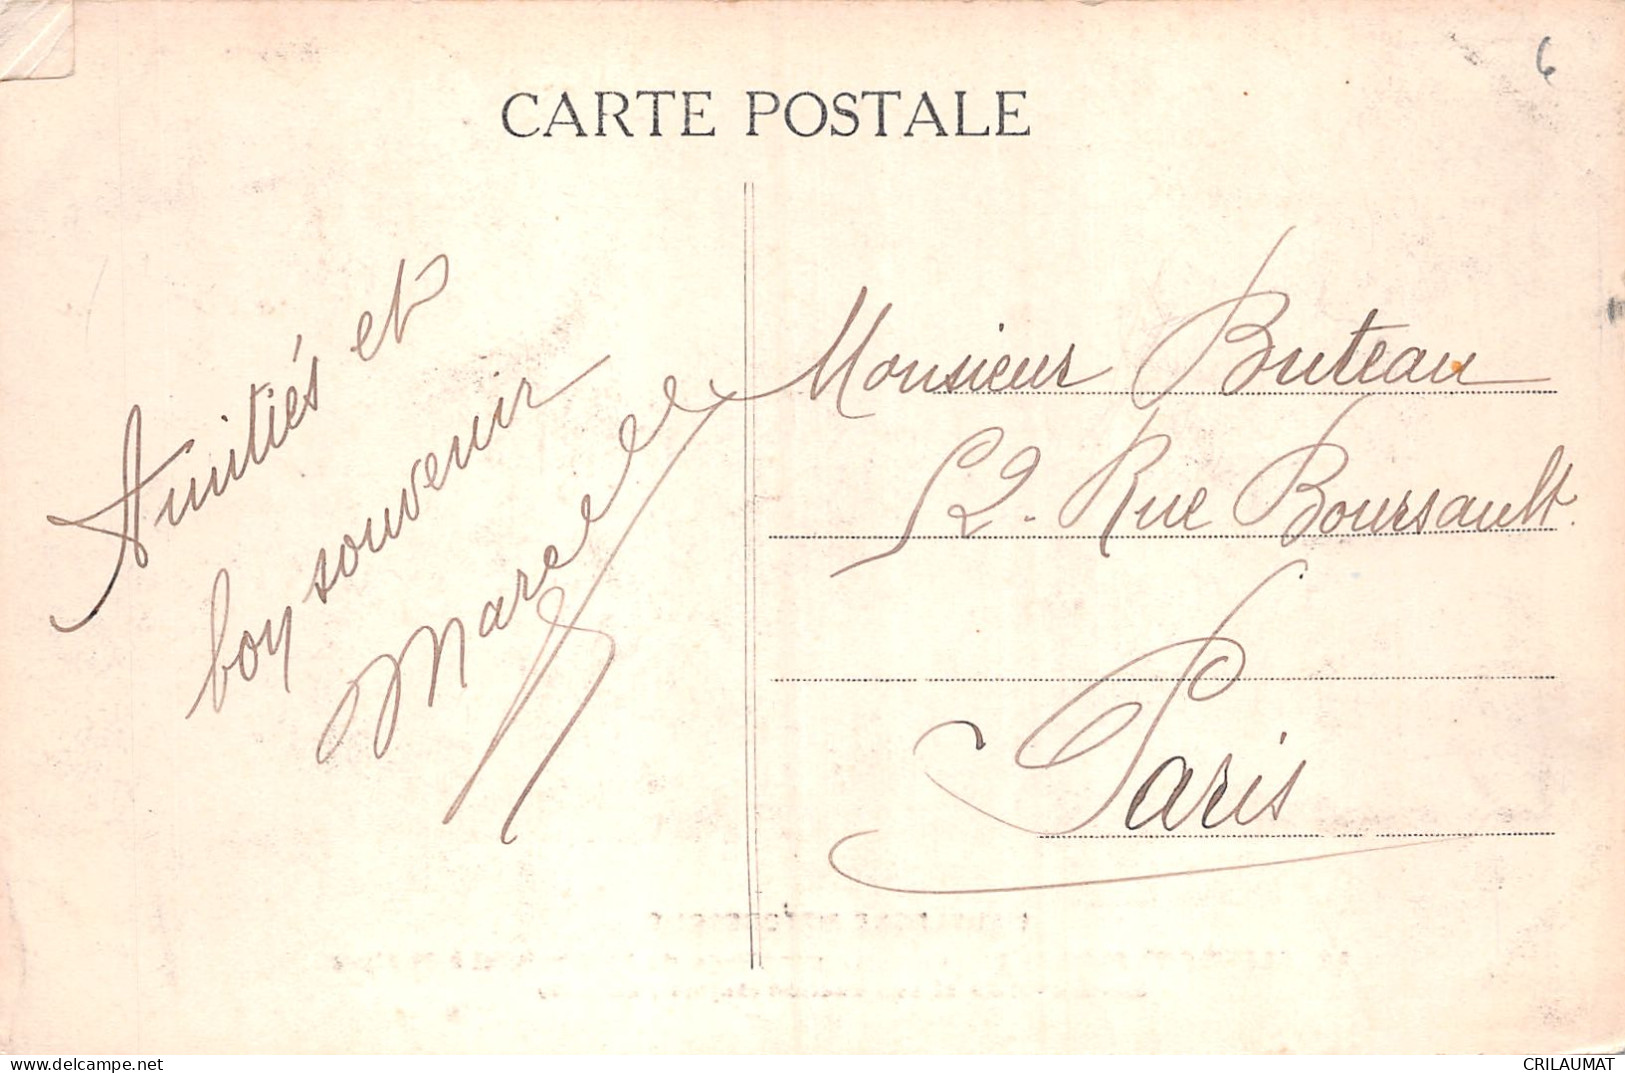 CARTE POSTALE
6
Amitiés et
bon souvenir
Marcel
Monsieur Buteau
52. Rue Boursault.
Paris
www.delcampe.net
CRILAUMAT